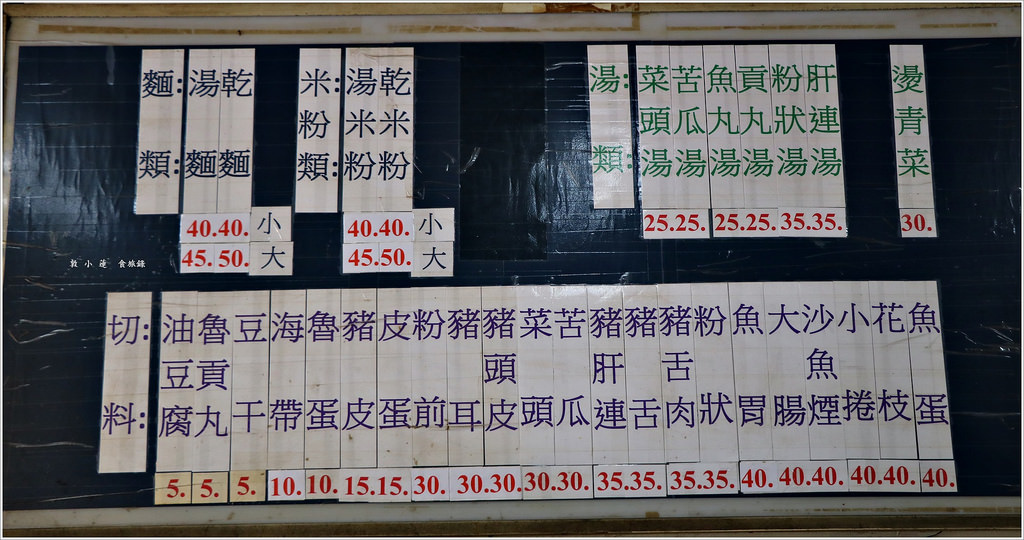 麵類:
湯麵
乾麵
40. 40. 小
45. 50. 大
米粉類:
湯米粉
乾米粉
40. 40. 小
45. 50. 大
湯類:
菜頭湯
苦瓜湯
魚丸湯
貢丸湯
粉狀湯
肝連湯
25. 25. 25. 25. 35. 35.
燙青菜
30.
敦小蓮 食旅錄
切料:
油豆腐
魯貢丸
豆干
海帶
魯蛋
豬皮
皮蛋
粉前
豬耳
豬頭皮
菜頭
苦瓜
豬肝連
豬舌
豬舌肉
粉狀
魚胃
大腸
沙魚煙
小捲
花枝
魚蛋
5. 5. 5. 10. 10. 15. 15. 30. 30. 30. 30. 30. 35. 35. 35. 35. 40. 40. 40. 40. 40. 40.